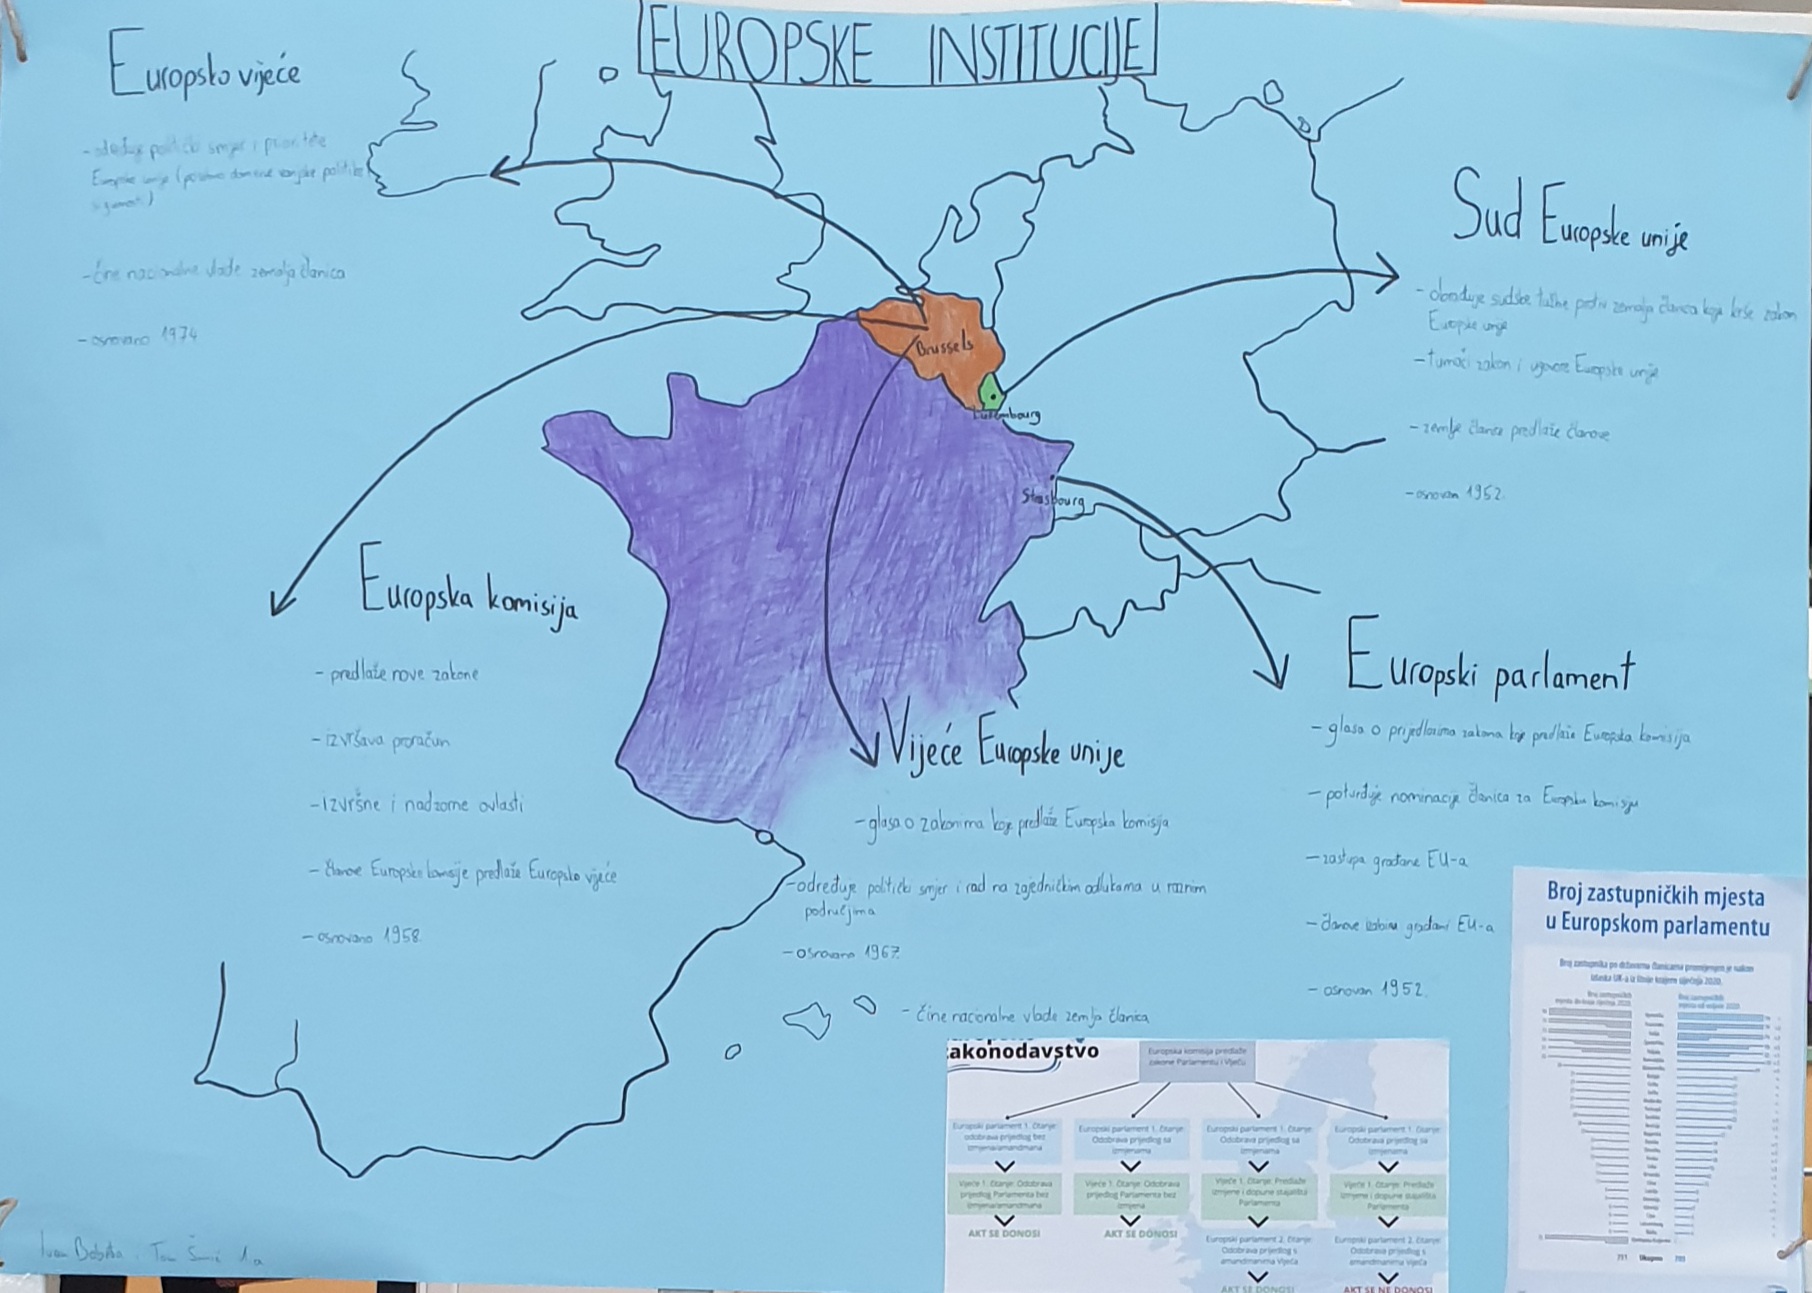 EUROPSKE INSTITUCIJE
Europsko vijeće
- određuje politički smjer i prioritete
Europske unije (posebno domene vanjske politike i
sigurnosti)
- čine nacionalne vlade zemalja članica
- osnovano 1974
Sud Europske unije
- obrađuje sudske tužbe protiv zemalja članica koje krše zakon
Europske unije
- tumači zakon i ugovore Europske unije
- zemlje članice predlaže članove
- osnovan 1952.
Brussels
Luxembourg
Strasbourg
Europska komisija
- predlaže nove zakone
- izvršava proračun
- izvršne i nadzorne ovlasti
- članove Europske komisije predlaže Europsko vijeće
- osnovano 1958.
Vijeće Europske unije
- glasa o zakonima koje predlaže Europska komisija
- određuje politički smjer i rad na zajedničkim odlukama u raznim
područjima
- osnovano 1967.
- čine nacionalne vlade zemlja članica
Europski parlament
- glasa o prijedlozima zakona koje predlaže Europska komisija
- potvrđuje nominacije članica za Europsku komisiju
- zastupa građane EU-a
- članove izabiru građani EU-a
- osnovan 1952.
akonodavstvo
Europska komisija predlaže
zakone Parlamentu i Vijeću
Europski parlament 1. čitanje:
odobrava prijedlog bez
izmjena/amandmana
Europski parlament 1. čitanje:
Odobrava prijedlog sa
izmjenama
Europski parlament 1. čitanje:
Odobrava prijedlog sa
izmjenama
Europski parlament 1. čitanje:
Odobrava prijedlog sa
izmjenama
Vijeće 1. čitanje: Odobrava
prijedlog Parlamenta bez
izmjena/amandmana
Vijeće 1. čitanje: Odobrava
prijedlog Parlamenta bez
izmjena
Vijeće 1. čitanje: Predlaže
izmjene i dopune stajališta
Parlamenta
Vijeće 1. čitanje: Predlaže
izmjene i dopune stajališta
Parlamenta
AKT SE DONOSI
AKT SE DONOSI
Europski parlament 2. čitanje:
Odobrava prijedlog s
amandmanima Vijeća
Europski parlament 2. čitanje:
Odobrava prijedlog s
amandmanima Vijeća
AKT SE DONOSI
AKT SE NE DONOSI
Broj zastupničkih mjesta
u Europskom parlamentu
Broj zastupnika po državama članicama promijenjen je nakon
izlaska UK-a iz Unije krajem siječnja 2020.
751 Ukupno 705
Ivan
1.a